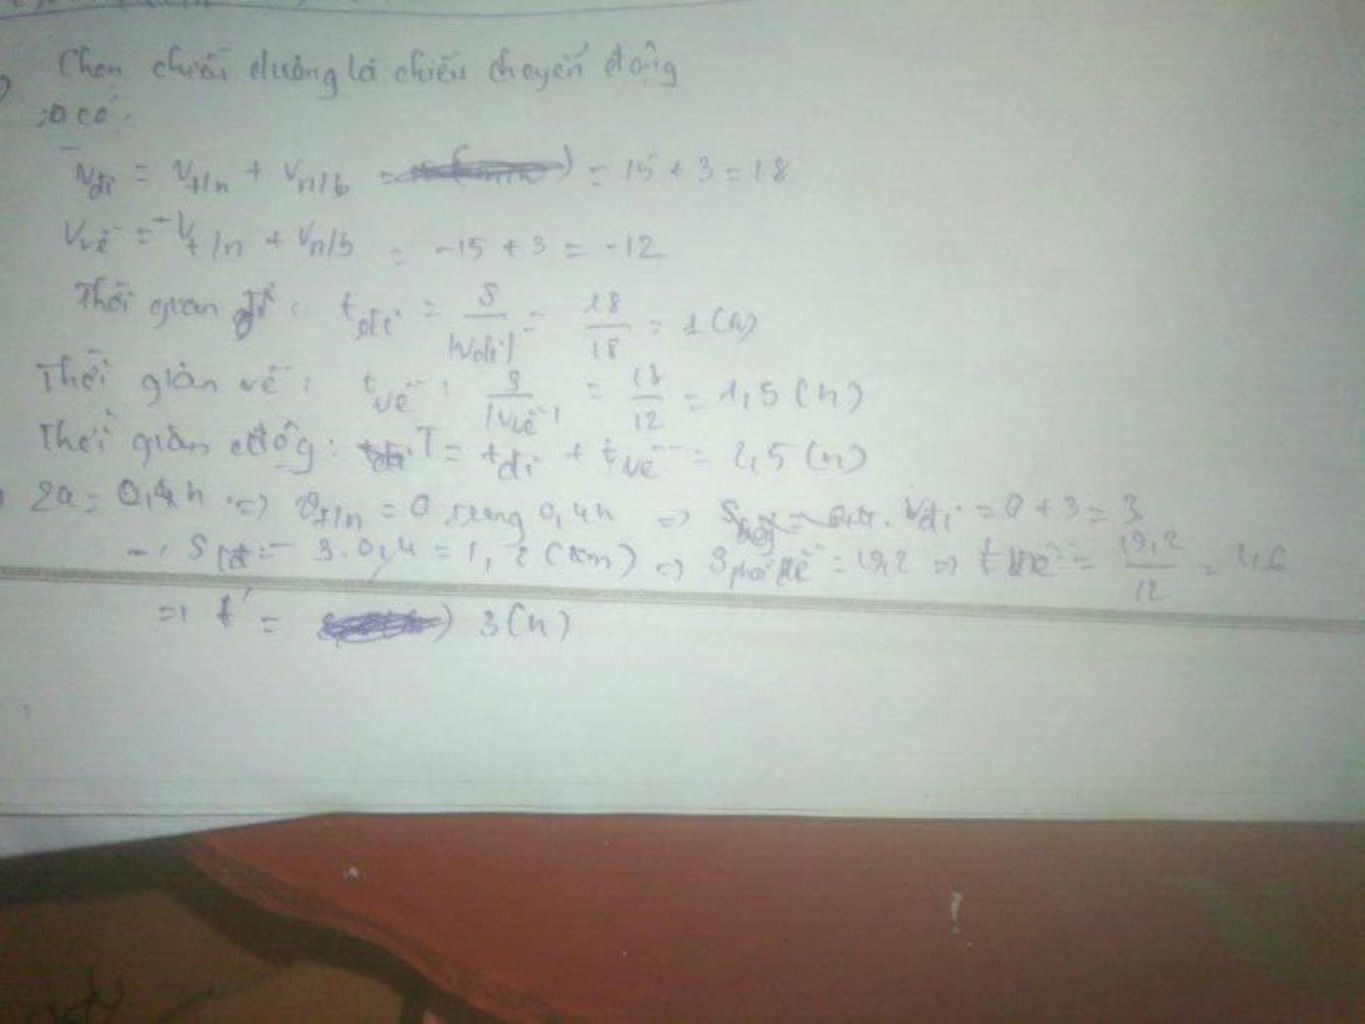 Chọn chiều dương là chiều chuyển động
Ta có:
Vđi = Vt/n + Vn/b = 15 + 3 = 18
Vvề = -Vt/n + Vn/b = -15 + 3 = -12
Thời gian đi: tđi = S / |Vđi| = 18 / 18 = 1 (h)
Thời gian về: tvề: S / |Vvề| = 18 / 12 = 1,5 (h)
Thời gian cđộg: T = tđi + tvề = 2,5 (h)
2a = 0,4h => Vt/n = 0 trong 0,4h => Vđi = 0 + 3 = 3
= 3.0,4 = 1,2 (km) => Sphải về = 19,2 => t về = 19,2 / 12 = 1,6
=> t' = 3 (h)